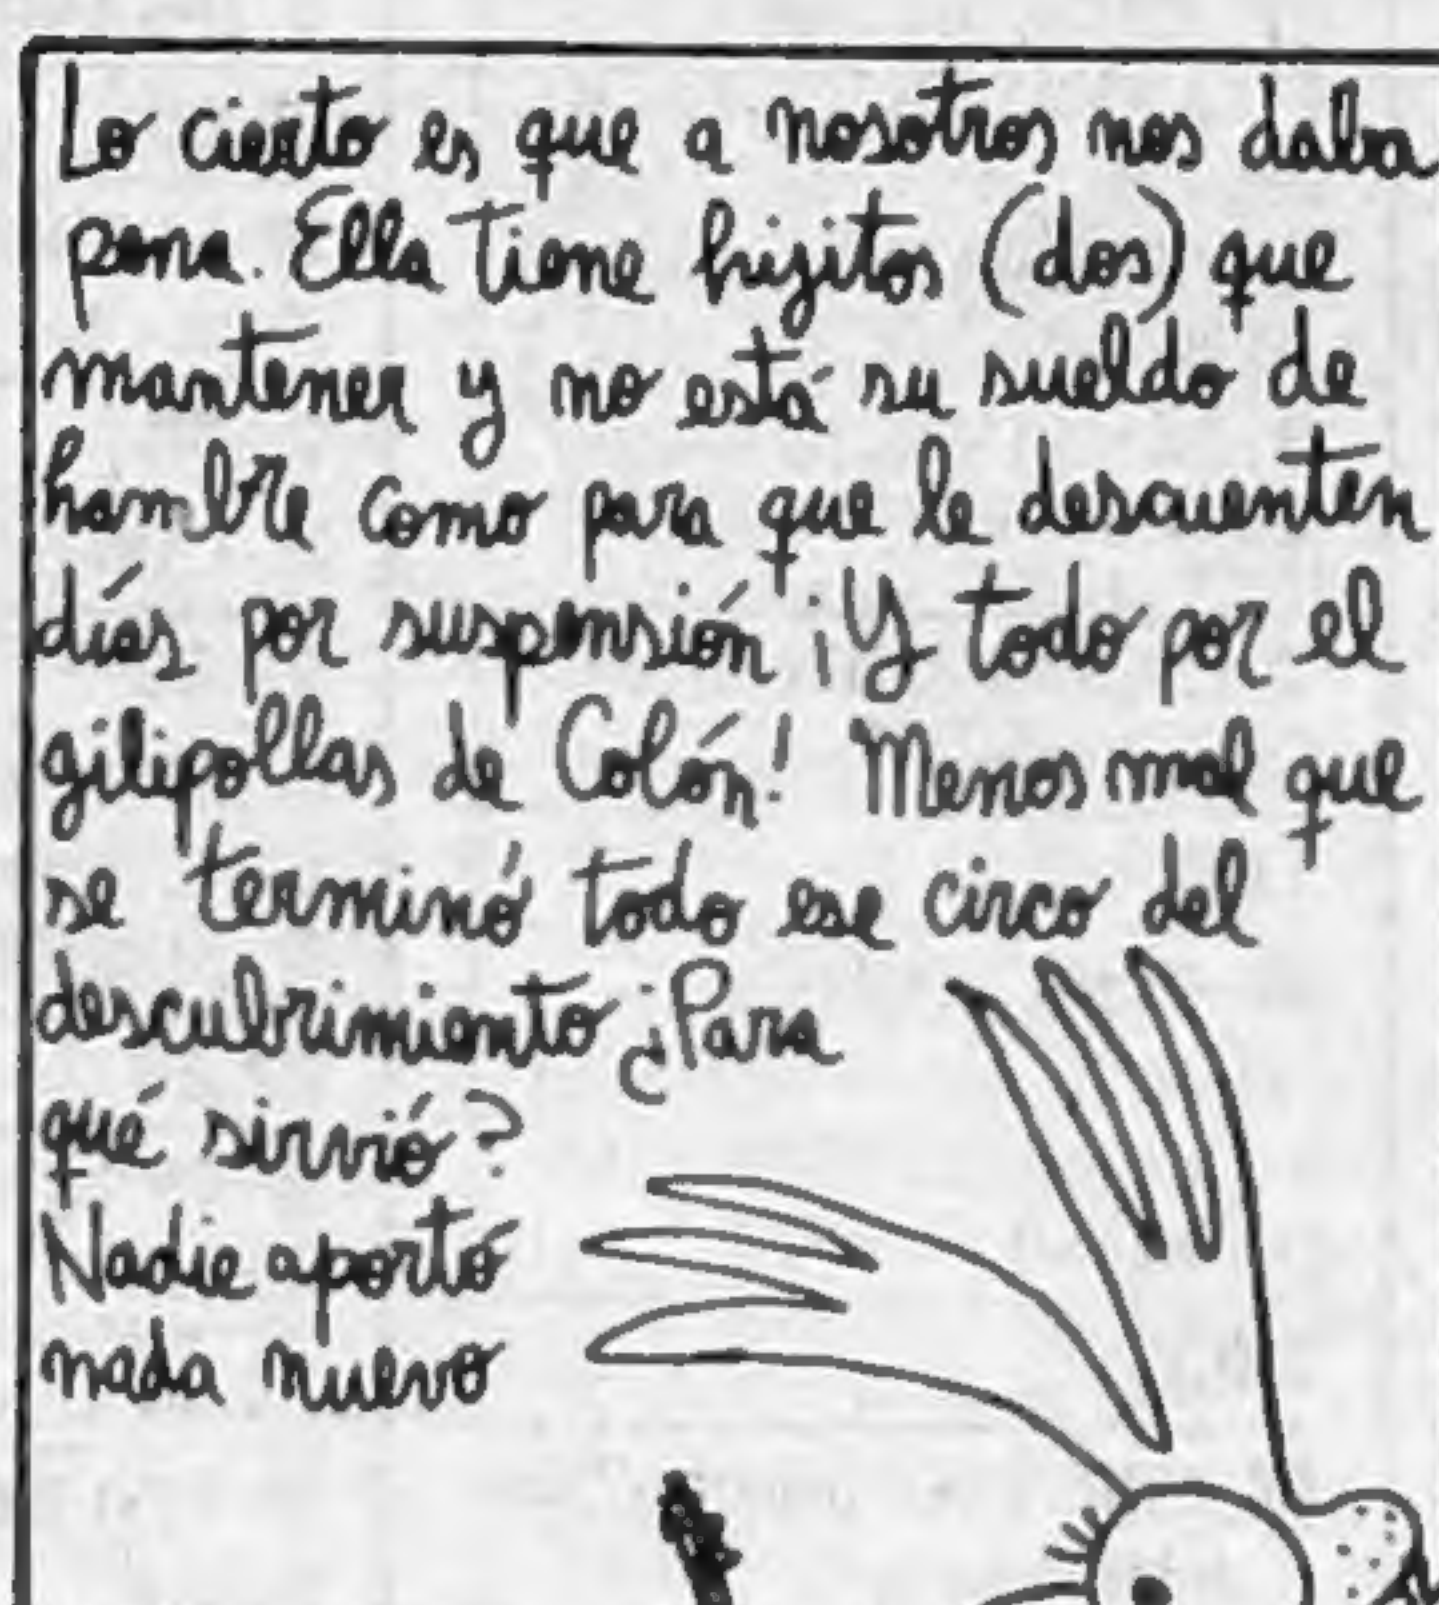 Lo cierto es que a nosotros nos daba
pena. Ella tiene hijitos (dos) que
mantener y no está su sueldo de
hambre como para que le descuenten
días por suspensión ¡Y todo por el
gilipollas de Colón! Menos mal que
se terminó todo ese circo del
descubrimiento ¿Para
qué sirvió?
Nadie aportó
nada nuevo